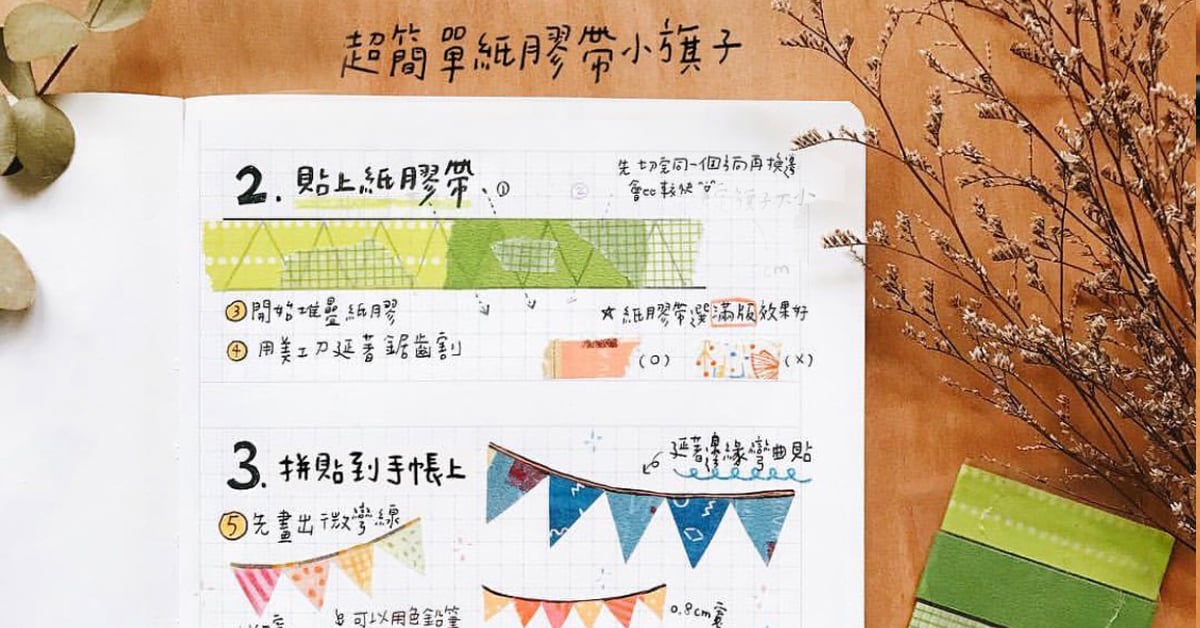 超簡單紙膠帶小旗子
2. 貼上紙膠帶
① ②
先切完同一個方向再換邊
會cc較快^o^
旗子大小
cm
③ 開始堆疊紙膠
④ 用美工刀延著鋸齒割
☆紙膠帶選滿版效果好
(O) (X)
3. 拼貼到手帳上
延著邊緣彎曲貼
⑤ 先畫出微彎線
可以用色鉛筆
0.8cm寬